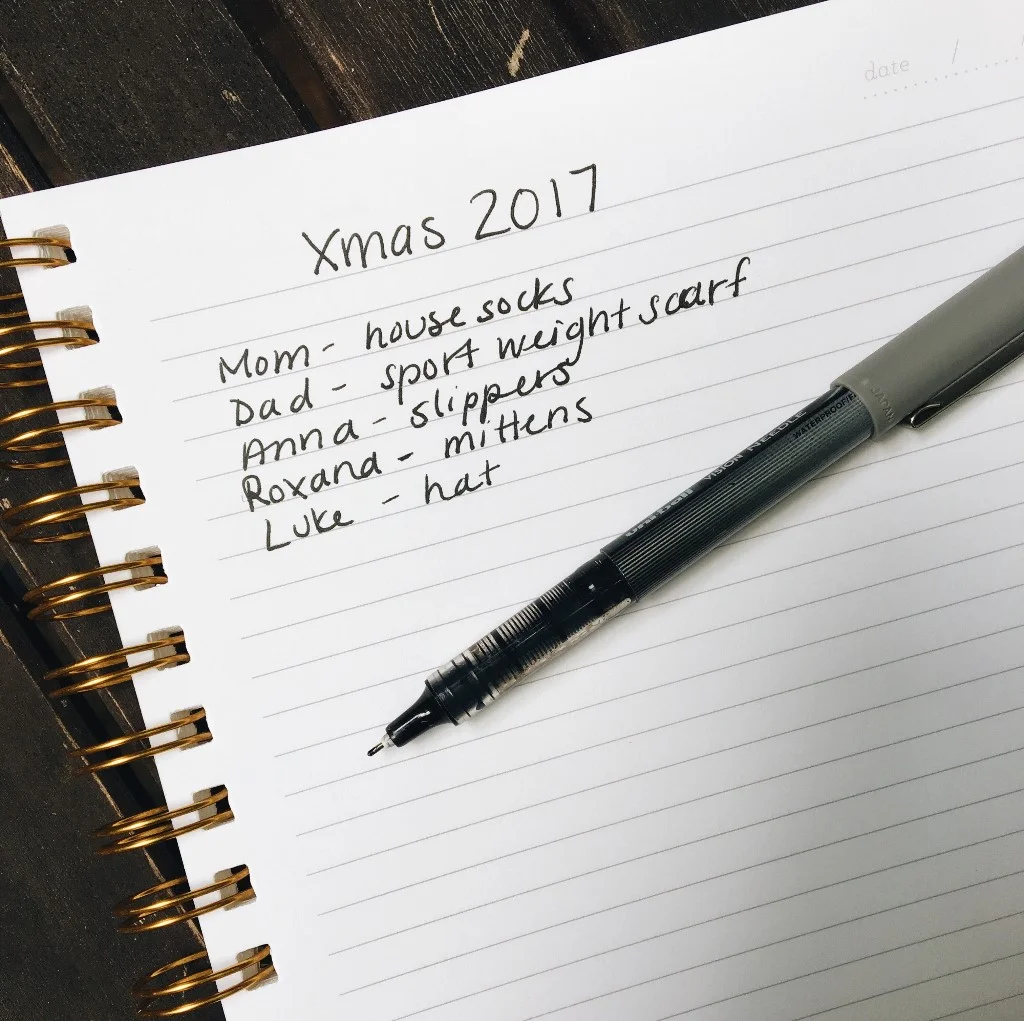 date /
Xmas 2017
Mom - house socks
Dad - sport weight scarf
Anna - slippers
Roxana - mittens
Luke - hat
uni-ball VISION NEEDLE
WATERPROOF
JAPAN